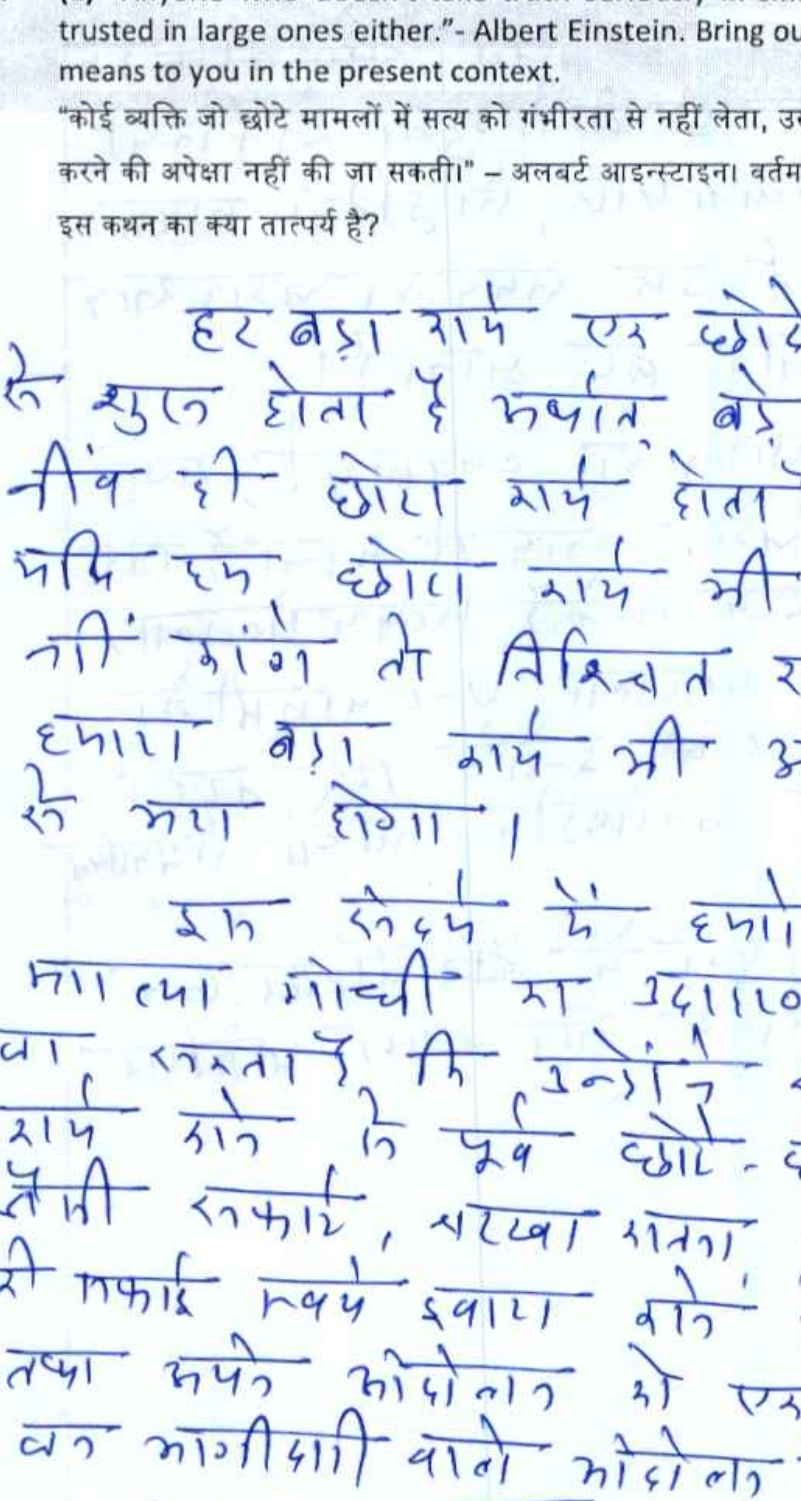 trusted in large ones either."- Albert Einstein. Bring ou
means to you in the present context.
"कोई व्यक्ति जो छोटे मामलों में सत्य को गंभीरता से नहीं लेता, उस
करने की अपेक्षा नहीं की जा सकती।" – अलबर्ट आइन्स्टाइन। वर्तम
इस कथन का क्या तात्पर्य है?
हर बड़ा कार्य एक छोटे
से शुरू होता है अर्थात् बड़े
नींव ही छोटा कार्य होता
यदि हम छोटा कार्य भी
नहीं करेंगे तो निश्चित र
हमारा बड़ा कार्य भी अ
से भरा होगा।
इस संदर्भ में हमारे
महात्मा गाँधी का उदाहरण
जा सकता है कि उन्होंने
कार्य करने के पूर्व छोटे-छ
जैसी सफाई, चरखा कातना
की सफाई स्वयं द्वारा करने
तथा अपने आंदोलन को एक
जन भागीदारी वाले आंदोलन